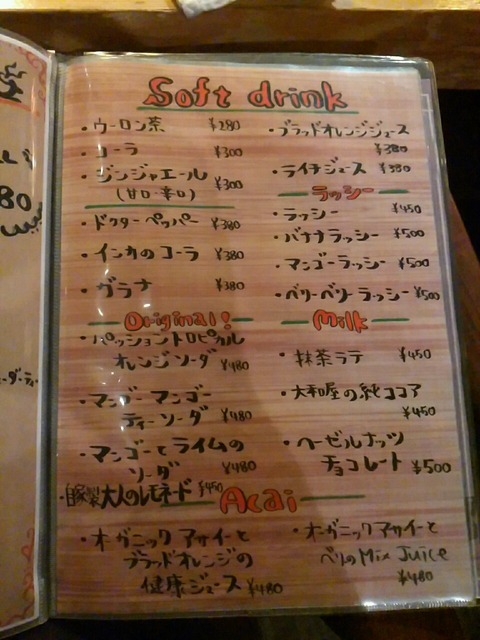 Soft drink
・ウーロン茶 ¥280
・コーラ ¥300
・ジンジャエール ¥300
(甘口・辛口)
・ドクターペッパー ¥380
・インカのコーラ ¥380
・ガラナ ¥380
・ブラッドオレンジジュース
¥380
・ライチジュース ¥380
ラッシー
・ラッシー ¥450
・バナナラッシー ¥500
・マンゴーラッシー ¥500
・ベリーベリーラッシー ¥500
Original!
・パッショントロピカル
オレンジソーダ ¥480
・マンゴーマンゴー
ティーソーダ ¥480
・マンゴーとライムの
ソーダ ¥480
・自家製大人のレモネード ¥450
Milk
・抹茶ラテ ¥450
・大和屋の純ココア
¥450
・ヘーゼルナッツ
チョコレート ¥500
Acai
・オーガニックアサイーと
ブラッドオレンジの
健康ジュース ¥480
・オーガニックアサイーと
ベリのMix Juice
¥480
80